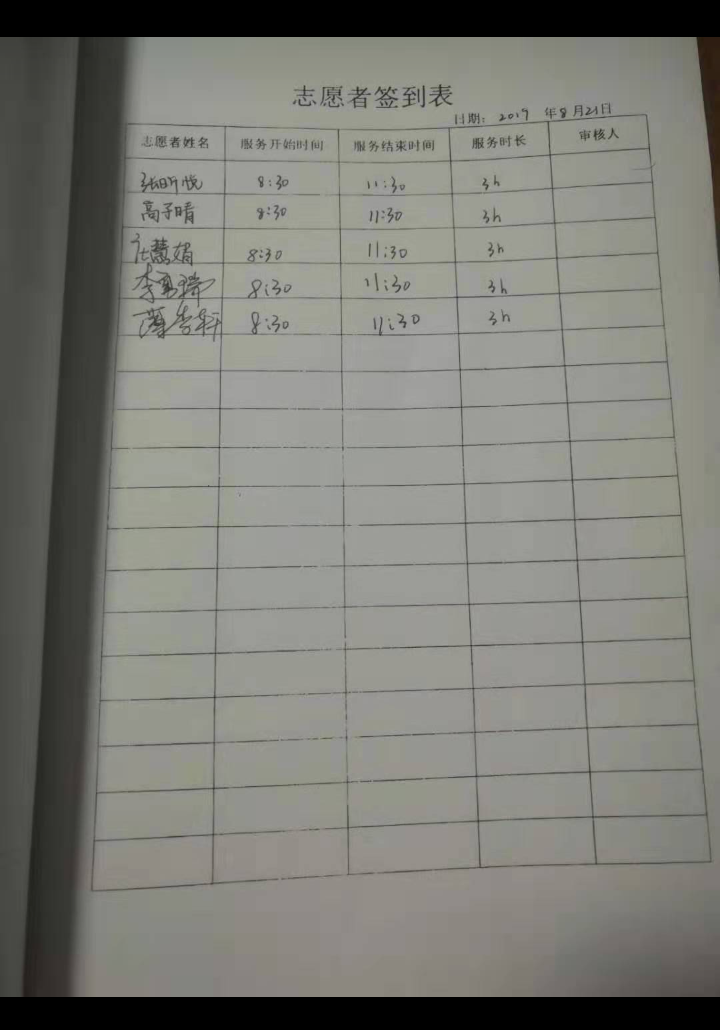 志愿者签到表
日期: 2019 年8月21日
志愿者姓名 服务开始时间 服务结束时间 服务时长 审核人
张昕悦 8:30 11:30 3h
高子晴 8:30 11:30 3h
慧娟 8:30 11:30 3h
李 8:30 11:30 3h
轩 8:30 11:30 3h